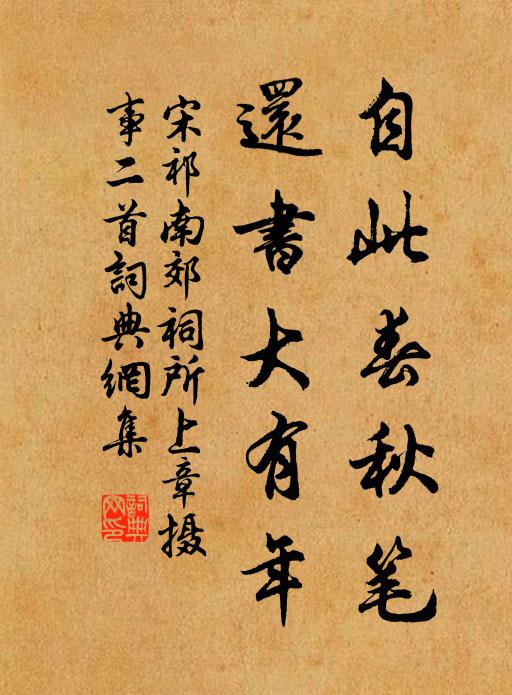 自此春秋笔
還書大有年
宋祁南郊祠所上章摄
事二首詞典網集
詞典
网印